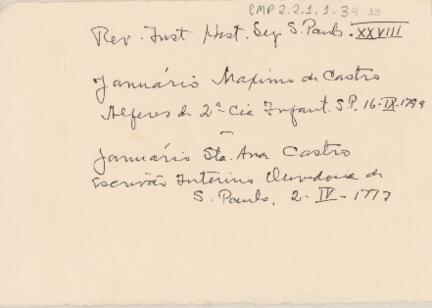 CMP 2.2.1.1.39-13
Rev. Inst. Hist. Seg S. Paulo. XXVIII
Januário Maximo de Castro
Alferes de 2ª Cia Infant. S.P. 16-IX-1799
Januário Sta. Ana Castro
escrivão Interino Ouvidoria de
S. Paulo, 2-IV-1777